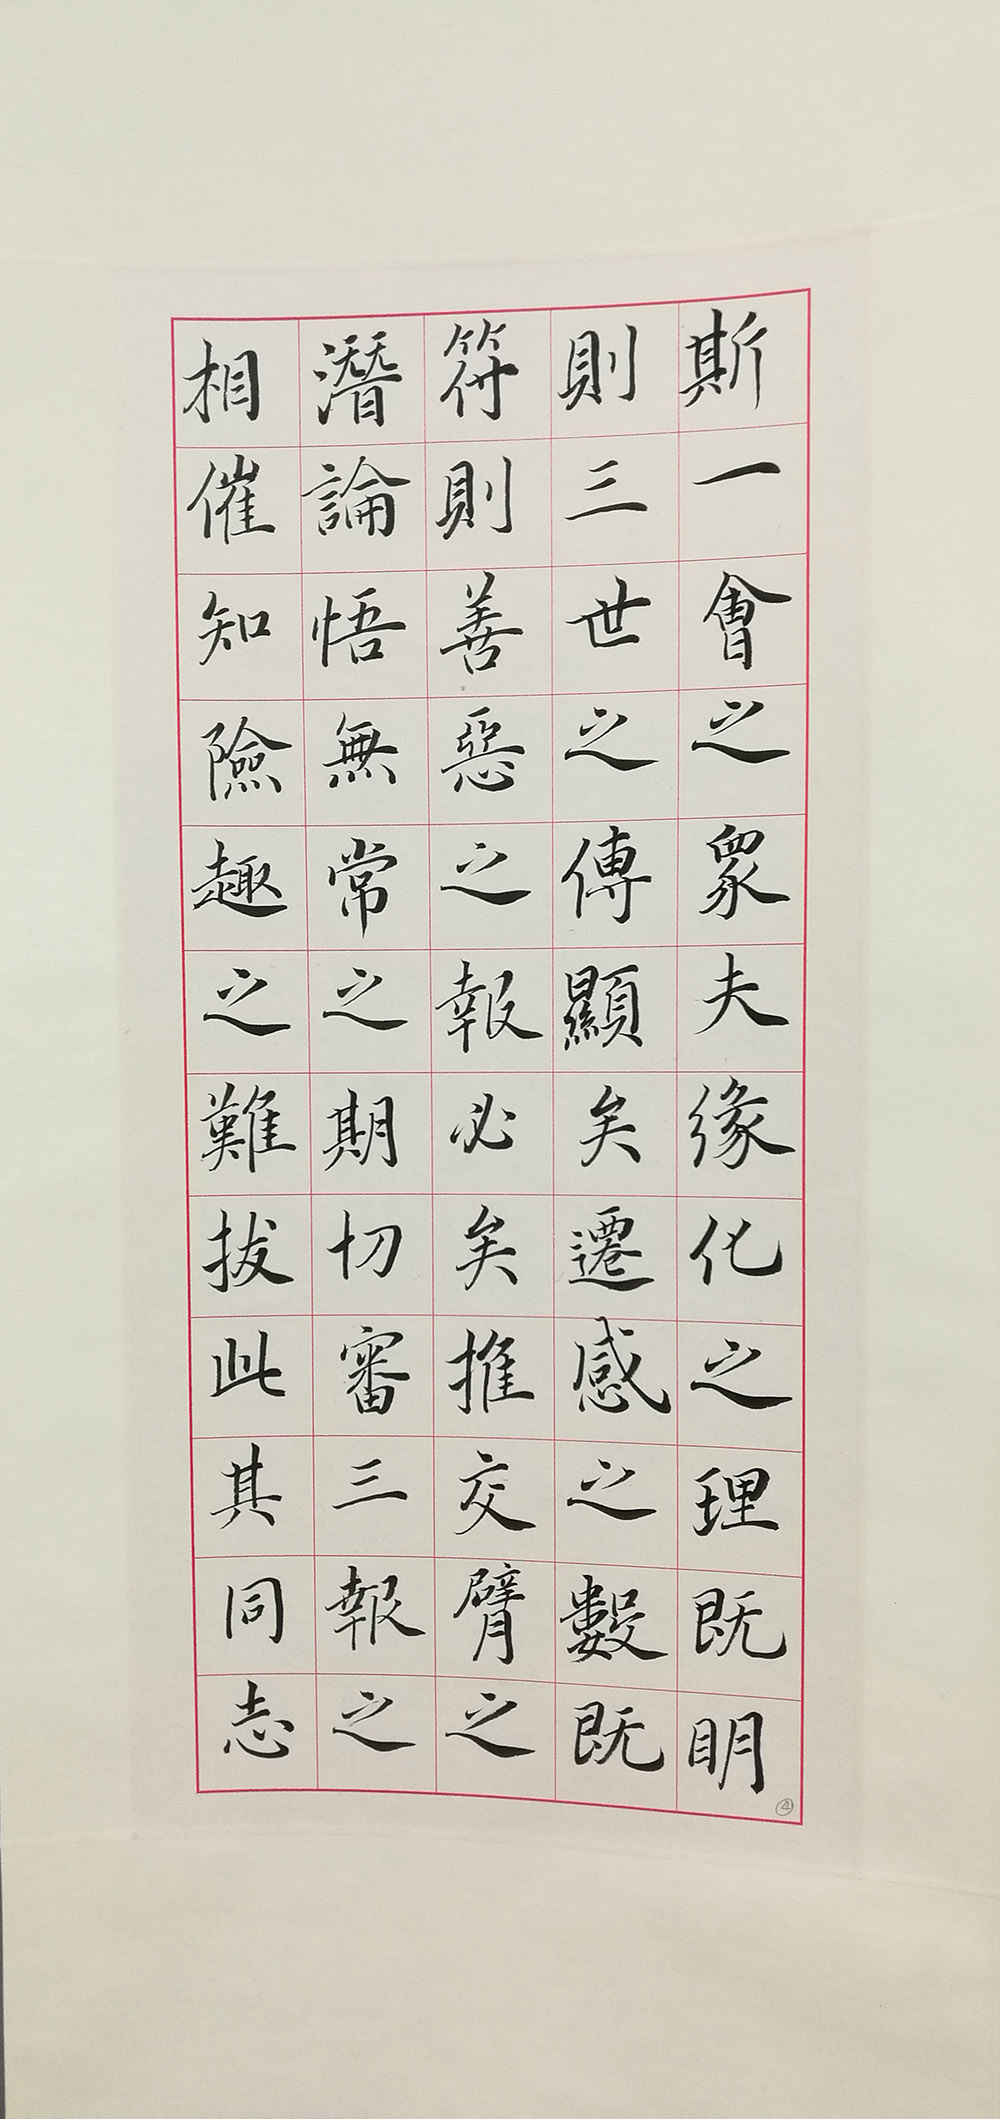 斯一會之衆夫緣化之理既明
則三世之傳顯矣遷感之數既
符則善惡之報必矣推交臂之
潛淪悟無常之期切審三報之
相催知險趣之難拔此其同志
④